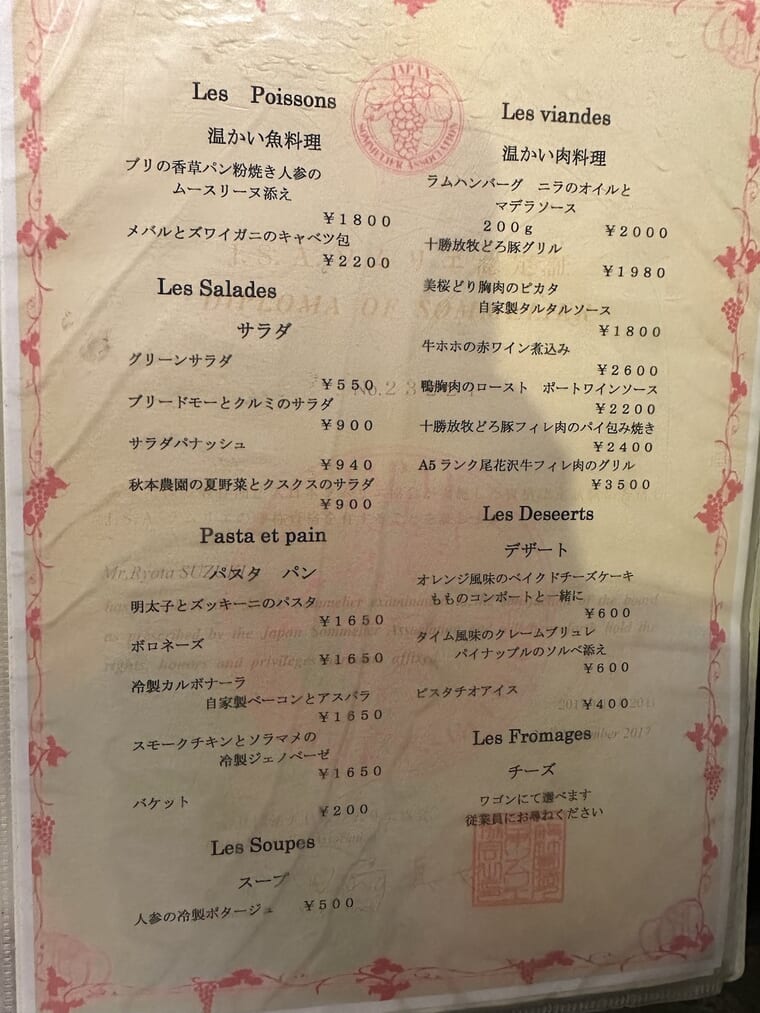 JAPAN
SOMMELIER ASSOCIATION
Les Poissons
温かい魚料理
ブリの香草パン粉焼き人参の
ムースリーヌ添え
￥１８００
メバルとズワイガニのキャベツ包
￥２２００
Les Salades
サラダ
グリーンサラダ
￥５５０
ブリードモーとクルミのサラダ
￥９００
サラダパナッシュ
￥９４０
秋本農園の夏野菜とクスクスのサラダ
￥９００
Pasta et pain
パスタ　パン
明太子とズッキーニのパスタ
￥１６５０
ボロネーズ
￥１６５０
冷製カルボナーラ
自家製ベーコンとアスパラ
￥１６５０
スモークチキンとソラマメの
冷製ジェノベーゼ
￥１６５０
バケット
￥２００
Les Soupes
スープ
人参の冷製ポタージュ　￥５００
Les viandes
温かい肉料理
ラムハンバーグ　ニラのオイルと
マデラソース
２００ｇ　￥２０００
十勝放牧どろ豚グリル
￥１９８０
美桜どり胸肉のピカタ
自家製タルタルソース
￥１８００
牛ホホの赤ワイン煮込み
￥２６００
鴨胸肉のロースト　ポートワインソース
￥２２００
十勝放牧どろ豚フィレ肉のパイ包み焼き
￥２４００
A5 ランク尾花沢牛フィレ肉のグリル
￥３５００
Les Deseerts
デザート
オレンジ風味のベイクドチーズケーキ
もものコンポートと一緒に
￥６００
タイム風味のクレームブリュレ
パイナップルのソルベ添え
￥６００
ピスタチオアイス
￥４００
Les Fromages
チーズ
ワゴンにて選べます
従業員にお尋ねください
DIPLOMA OF